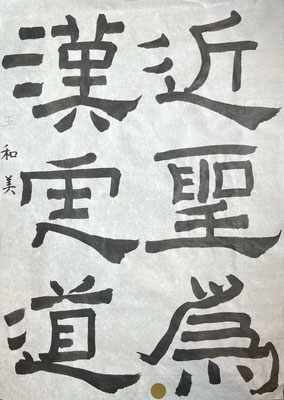 近聖爲
漢定道
和美